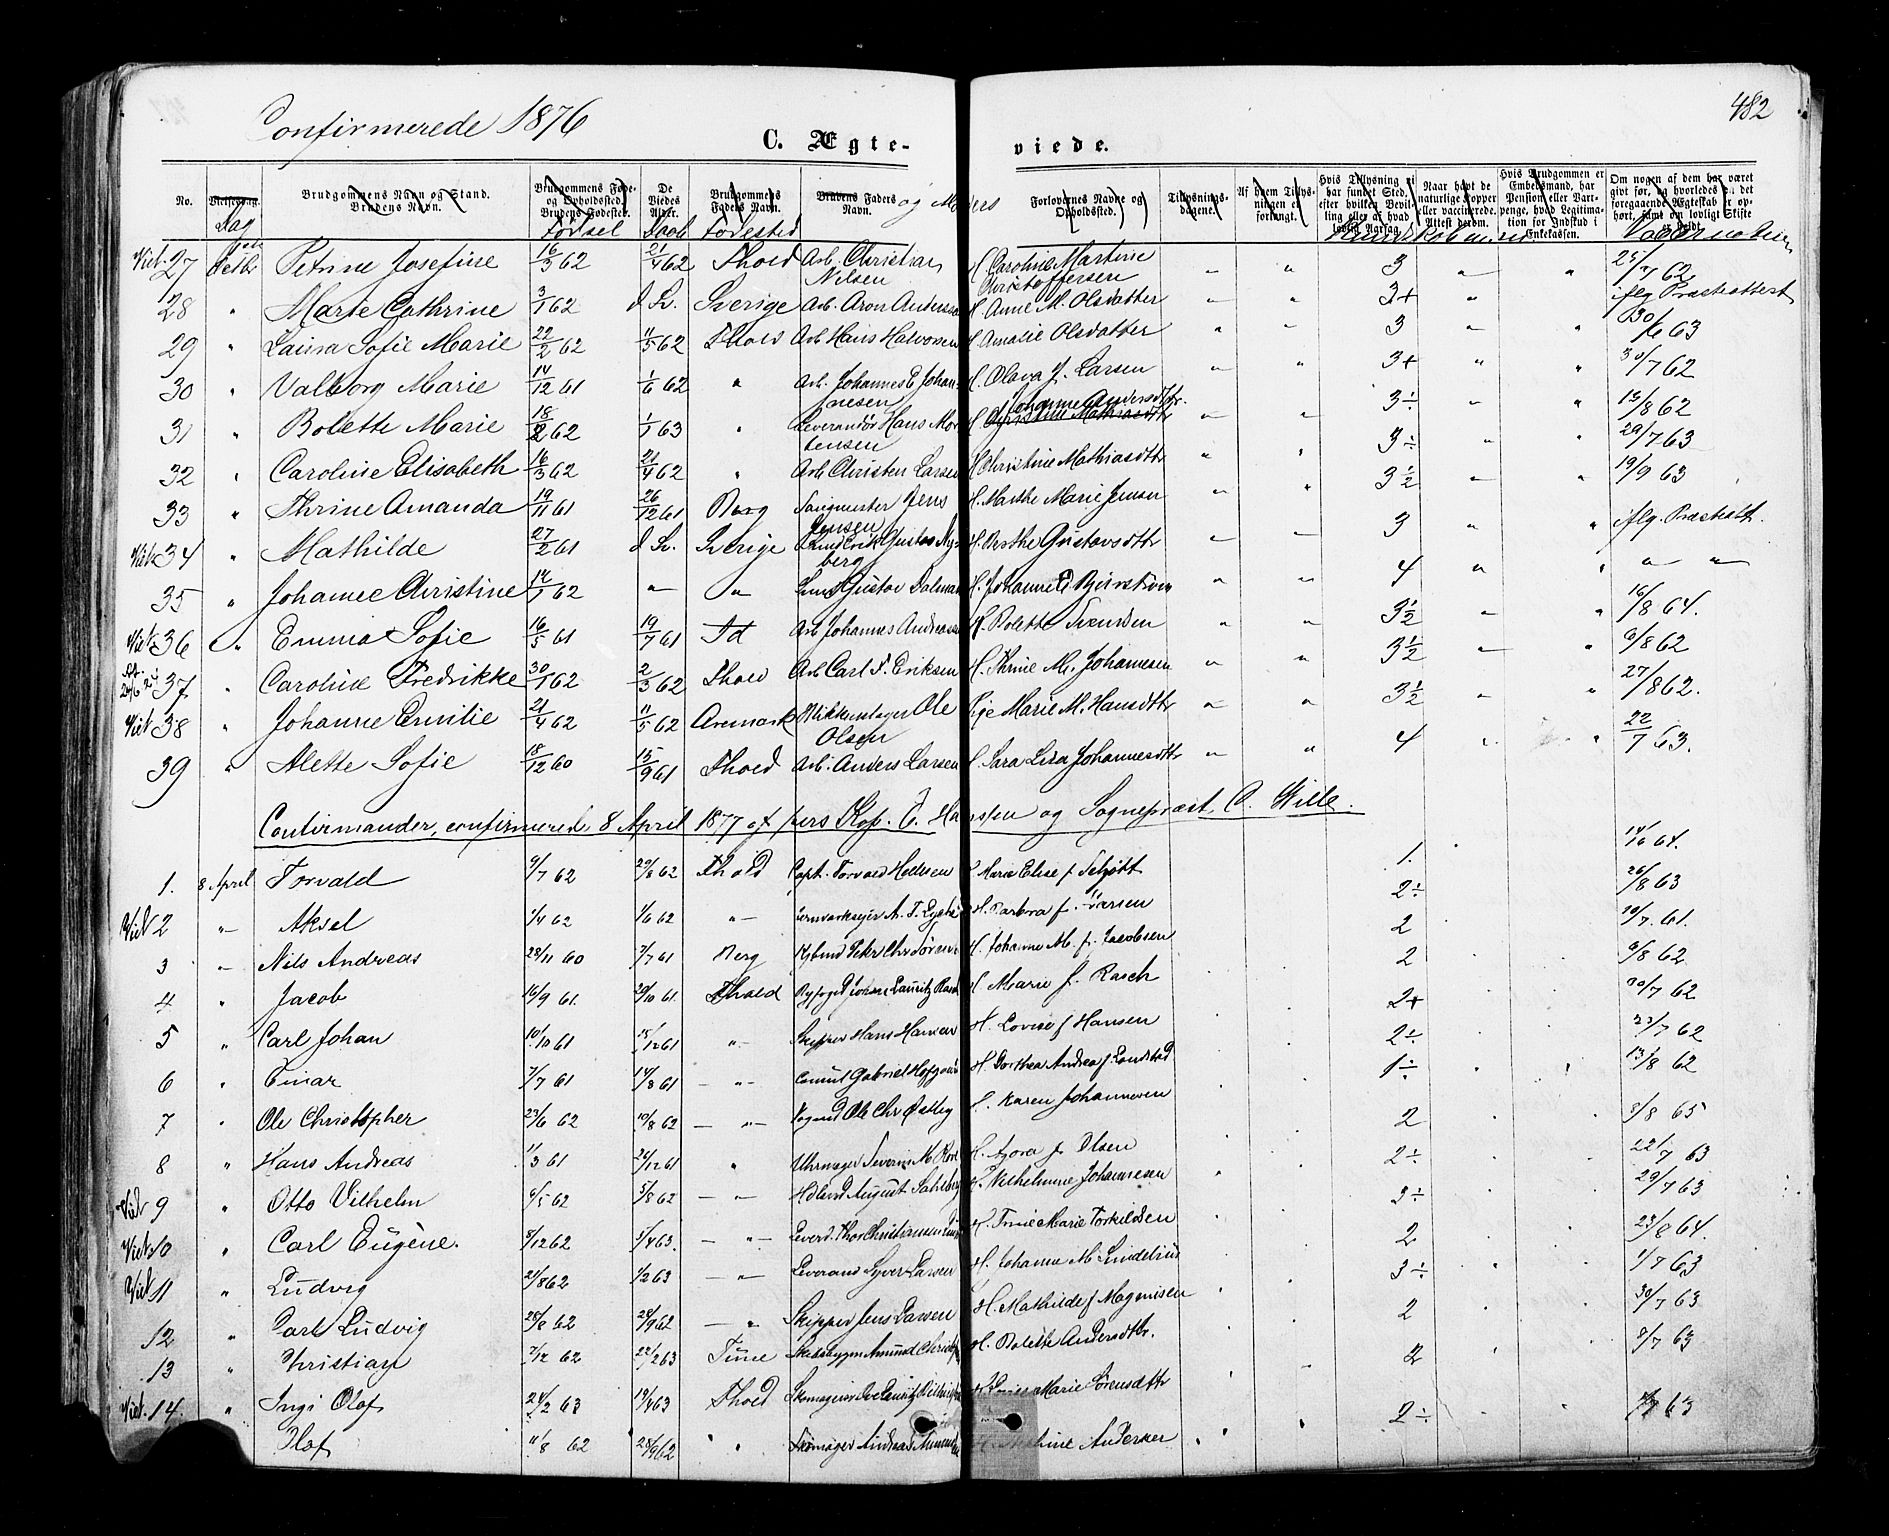 Confirmerede 1876
482
C. Ægte-viede.
No. Vielsesdag. Brudgommens Navn og Stand. Brudens Navn. Brudgommens Føde- og Opholdssted. Brudens Fødested. De Viedes Alder. Brudgommens Faders Navn. Brudens Faders Navn. Forlovernes Navne og Opholdssted. Tillysnings-dagene. Af hvem Tillysningen er forlangt. Hvis Tillysning ei har fundet Sted, efter hvilken Bevilling eller af hvad lovlig Aarsag. Naar havt de naturlige Kopper eller vaccinerede. Attest derom. Hvis Brudgommen er Embedsmand, har Pension eller Vartpenge, hvad Legitimation for Indskud i Enkekassen.
Dag Fødsel Daab Fødested og Moders
27 Petrine Josefine 16/3 62 21/4 62 Fhald Arb. Christian Nilsen H. Caroline Martine Christoffersen 3 25/7 62
28 " Marte Cathrine 3/1 62 d. Sv. Sverige Arb. Aron Andersen H. Anne M. Olsdatter 3+ iflg Præsteattest
29 " Laura Sofie Marie 22/2 62 11/5 62 Fhald Arb Hans Halvorsen H. Amalie Olsdatter 3 30/6 63
30 " Valborg Marie 14/12 61 1/6 62 " Arb. Johannes E Johannesen H. Olava f. Larsen 3+ 30/7 62
31 " Bolette Marie 18/2 62 1/1 63 " Leverandør Hans Mortensen H. Johanne Andersdtr. 3÷ 13/8 62
32 " Caroline Elisabeth 16/3 62 21/4 62 " Arb Christen Larsen H. Christine Mathiasdtr 3÷ 29/7 63
33 " Thrine Amanda 19/11 61 26/12 61 Berg Jens Jensen H. Marthe Marie Jensen 3½ 19/9 63
Viet 34 " Mathilde 27/2 61 d Sv. Sverige Erik Gustav Nyberg H. Berthe Gustavsdtr 3 iflg. Præsteatt.
35 " Johanne Christine 14/1 62 " " Gustav Dalman H. Johanne 4 " "
Viet 36 " Emma Sofie 16/5 61 19/7 61 Id Arb Johannes Andreassen H. Bolette Svendsen 3½ 16/8 64.
37 " Caroline Fredrikke 30/1 62 2/3 62 Fhald Arb Carl F. Eriksen H. Thrine M. Johannesen 3½ 6/8 62
Viet 38 " Johanne Emilie 21/4 62 11/5 62 Aremark Ole Olsen Pige Marie M. Hansdtr 3½ 27/8 62.
39 " Alette Sofie 18/12 60 15/9 61 Fhald Arb. Anders Larsen H. Sara Lisa Johannesdtr 4 22/7 63.
Confirmander, confirmerede 8 April 1877 af pers. Kap. C. Hanssen og Sognepræst C. Wille.
1. 8 April Torvald 9/7 62 29/8 62 Fhald Capt. Torvald Hellesen H. Marie Elise f Schjøtt 1. 14/6 64.
Viet 2 " Aksel 1/4 62 1/6 62 " H. Barbra f. Larsen 2÷ 26/8 63
3 " Nils Andreas 28/11 60 7/7 61 Berg Peter Chr Sørensen H. Johanne M. f. Jacobsen 2 10/7 61.
4 " Jacob 16/9 61. 20/10 61. Fhald Byfoged Johan Lauritz Rasch H. Marie f. Rasch 2 9/8 62
5 " Carl Johan 10/10 61 15/12 61 " Skipper Hans Hansen H. Lovise f Hansen 2+ 30/7 62
6 " Einar 7/7 61 14/8 61 " Consul Gabriel H. Dorthea Andrea f Landstad 2÷ 23/7 62
7 " Ole Christopher 23/6 62 10/8 62 " Vognmd Ole Chr Østby H. Karen Johannesen 1÷ 13/8 62
8 " Hans Andreas 1/3 61 26/12 61 " Uhrmager Severin M. H. Thora f. Olsen 2 8/8 65
Viet 9 " Otto Vilhelm 4/5 62 5/8 62 " August Sahlberg H. Vilhelmine Johannesen 2÷ 22/7 63
Viet 10 " Carl Eugène. 8/12 62 5/4 63. " Thor Christiansen H. Trine Marie Torkildsen 3÷ 29/7 63
Viet 11 " Ludvig 21/8 62 1/2 63 " Leverand Syver Larsen H. Johanne M. Lindelius 2 23/8 64.
12 " Carl Ludvig 28/8 62 28/9 62 " Skipper Jens Larsen H. Mathilde f Magnusen 3÷ 1/7 63
13 " Christian 7/12 62 22/2 63 Tune Amund H. Bolette Andersdtr. 2 30/7 63
Viet. 14. " Ingi Olaf 24/2 63 19/4 63 Fhald Skomager H. Lovise Marie Sørensdtr 2 8/7 63
Olaf 11/8 62 28/9 62 " Skomager Andreas Andersen 2÷ 63